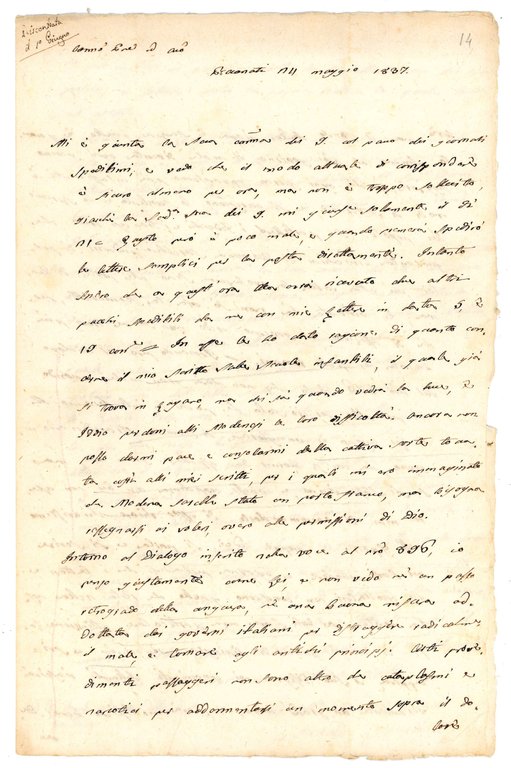 Riscontrata
il 1° Giugno
14
Recanati 14 maggio 1837.
Mi è giunta la Sua dei 9. col pacco dei giornali
speditimi, e vedo che il modo attuale di corrispondere
è sicuro almeno per ora, ma non è troppo sollecito,
giacchè la Sua dei 9. mi giunse solamente il dì
14 = Questo però è poco male, e quando premerà spedirò
le lettere semplici per la posta direttamente. Intanto
spero che a quest'ora Ella avrà ricevuto due altri
pacchi speditili da me con mie lettere in data 5, e
19 = In esse le ho dato ragione di quanto con
cerne il mio scritto sulle Scuole infantili, il quale già
si trova in, ma chi sa quando vedrà la luce, e
Iddio perdoni alli Modenesi le loro difficoltà. Ancora non
posso darmi pace e consolarmi della cattiva sorte toca
ta costì alli miei scritti, per i quali mi ero immaginato
che Modena sarebbe stata un porto franco, ma bisogna
rassegnarsi ai voleri, ovvero alle permissioni di Dio.
Intorno al Dialogo inserito nella Voce al nro 896, io
penso giustamente come Lei, e non vedo nè un passo
retrogrado della, nè una buona misura ad
dottata dai governi italiani per distruggere radicalmente
il male, e tornare agli antichi principj. Certi prove
dimenti passaggeri non sono altro che cataplasmi e
narcotici per addormentarsi un momento sopra il do-
lore